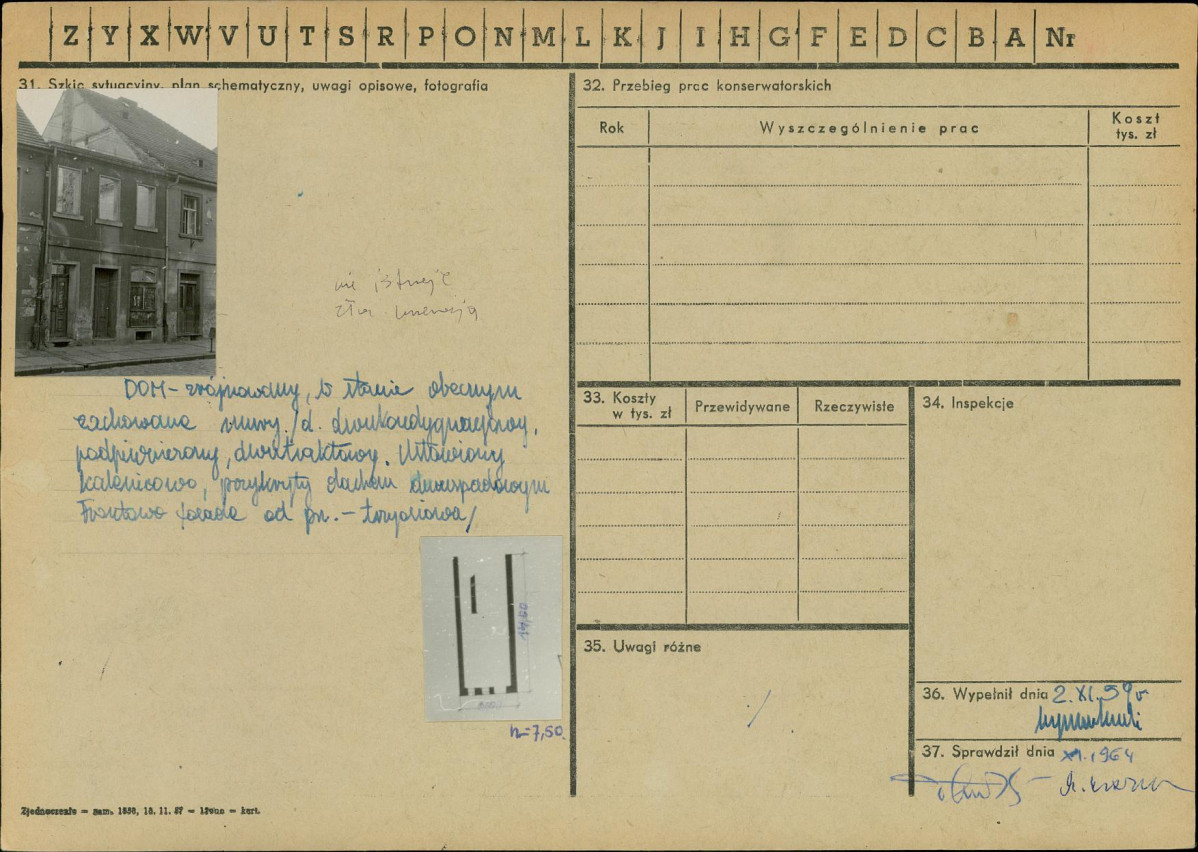 Z Y X W V U T S R P O N M L K J I H G F E D C B A Nr
31. Szkic sytuacyjny, plan schematyczny, uwagi opisowe, fotografia
nie istnieje
DOM - zrujnowany, w stanie obecnym
zachowane mury. /d. dwukondygnacyjny,
podpiwniczony, dwutraktowy. Ustawiony
kalenicowo, przykryty dachem dwuspadowym
Frontowa fasada od pn. - trzyosiowa/
14,60
h=7,50.
Zjednoczenie — zam. 1656, 18. 11. 57 — — kart.
32. Przebieg prac konserwatorskich
Rok
Wyszczególnienie prac
Koszt
tys. zł
33. Koszty
w tys. zł
Przewidywane
Rzeczywiste
34. Inspekcje
35. Uwagi różne
36. Wypełnił dnia 2.XI.59r
37. Sprawdził dnia XI.1964